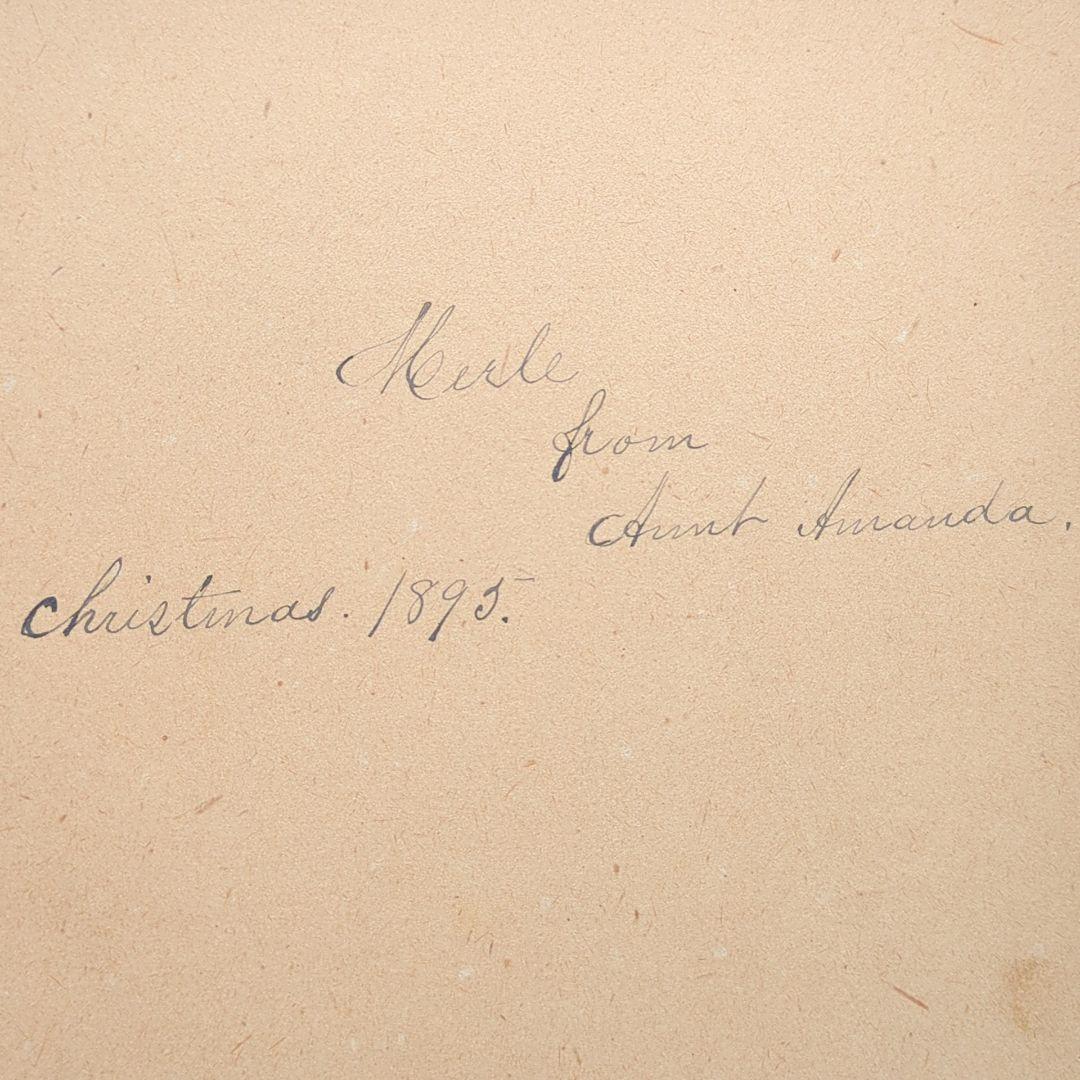 Merle
from
Aunt Amanda.
Christmas. 1895.